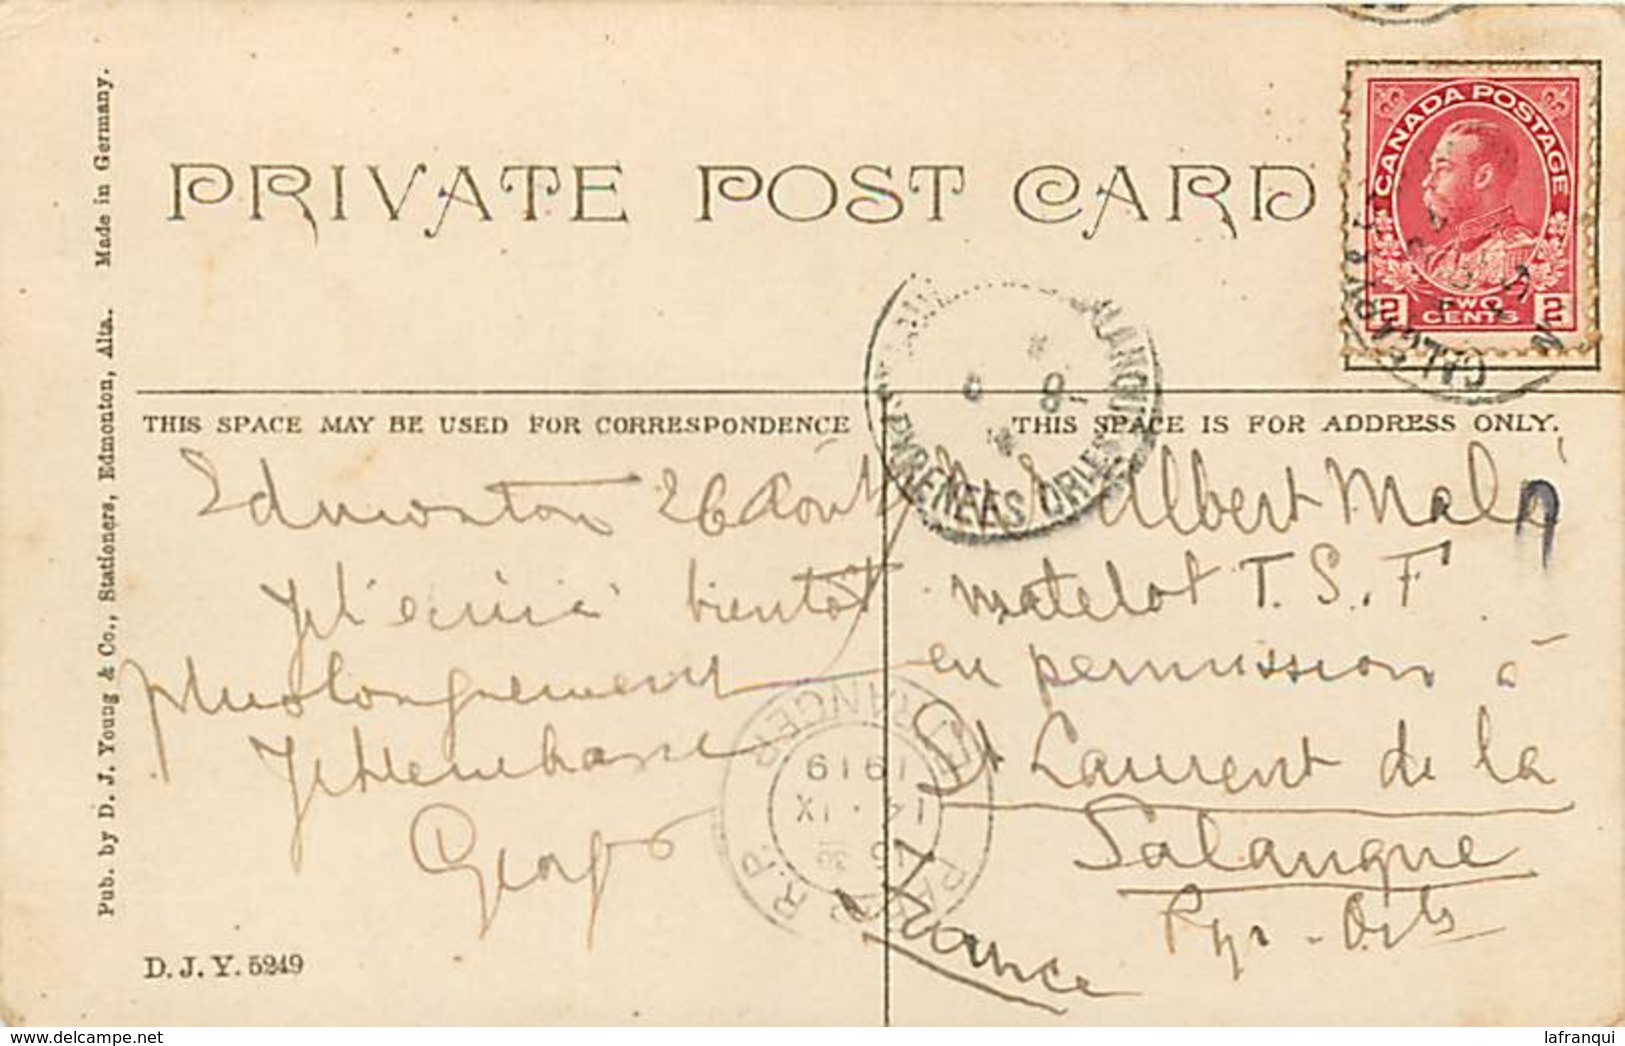 PRIVATE POST CARD
CANADA POSTAGE
2 TWO CENTS 2
CALGARY
THIS SPACE MAY BE USED FOR CORRESPONDENCE
THIS SPACE IS FOR ADDRESS ONLY.
PYRENEES ORLES
8
Edmonton 26 Août
Je t'écrirai bientôt
plus longuement
Je t'embrasse
Albert
matelot T.S.F
en permission à
St Laurent de la
Salanque
Pyr-Orles
France
ETRANGER
1919
14 IX
PARIS R.P.
D.J.Y. 5249
Pub. by D. J. Young & Co., Stationers, Edmonton, Alta. Made in Germany.
delcampe.net
lafranqui